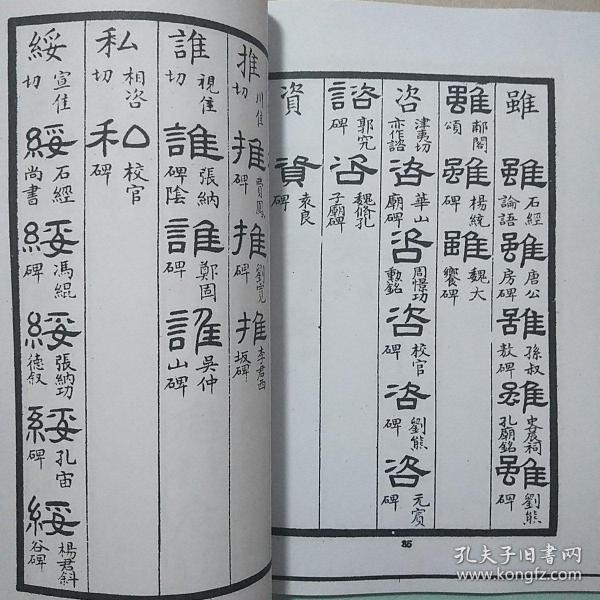 雖 雖 石經論語 雖 唐公房碑 雖 孫叔敖碑 雖 史晨祠孔廟銘 雖 劉熊碑
雖 郙閣頌 雖 楊統碑 雖 魏大饗碑
咨 津夷切亦作諮 咨 華山廟碑 咨 周憬功勳銘 咨 校官碑 咨 劉熊碑 咨 元賓碑
諮 郭究碑 咨 魏脩孔子廟碑
資 資 袁良碑
35
推 川隹切 推 賈鳳碑 推 劉寬碑 推 李君西坂碑
誰 視隹切 誰 張納碑陰 誰 鄭固碑 誰 吳仲山碑
私 相咨切 私 校官碑
綏 宣隹切 綏 石經尚書 綏 馮緄碑 綏 張納功德叙 綏 孔宙碑 綏 楊君斜谷碑
孔夫子旧书网
www.kongfz.com